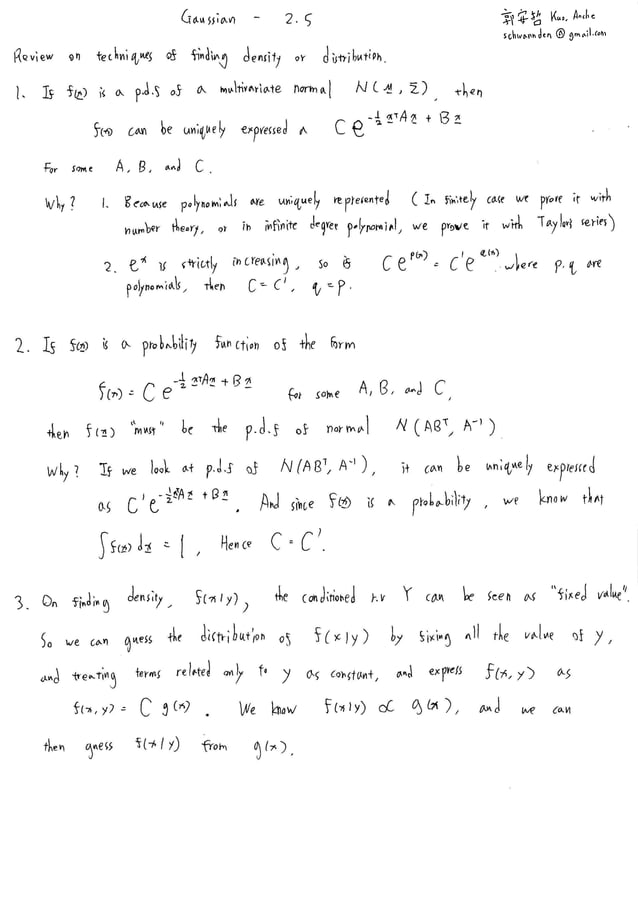 Gaussian - 2.5
郭安哲 Kuo, Anche
schwannden @ gmail.com
Review on techniques of finding density or distribution.
1. If f(x) is a p.d.f of a multivariate normal N(μ, Σ), then
f(x) can be uniquely expressed a C e^{-½ xᵀAx + Bx}
For some A, B, and C.
Why? 1. Because polynomials are uniquely represented (In finitely case we prove it with
number theory, or in infinite degree polynomial, we prove it with Taylor's series)
2. eˣ is strictly increasing, so if C e^{p(x)} = C' e^{q(x)} where p, q are
polynomials, then C = C', q = p.
2. If f(x) is a probability function of the form
f(x) = C e^{-½ xᵀAx + Bx} for some A, B, and C,
then f(x) "must" be the p.d.f of normal N(ABᵀ, A⁻¹)
Why? If we look at p.d.f of N(ABᵀ, A⁻¹), it can be uniquely expressed
as C' e^{-½ xᵀAx + Bx}. And since f(x) is a probability, we know that
∫f(x) dx = 1, Hence C = C'.
3. On finding density, f(x|y), the conditioned r.v Y can be seen as "fixed value".
So we can guess the distribution of f(x|y) by fixing all the value of y,
and treating terms related only to y as constant, and express f(x, y) as
f(x, y) = C g(x). We know f(x|y) ∝ g(x), and we can
then guess f(x|y) from g(x).